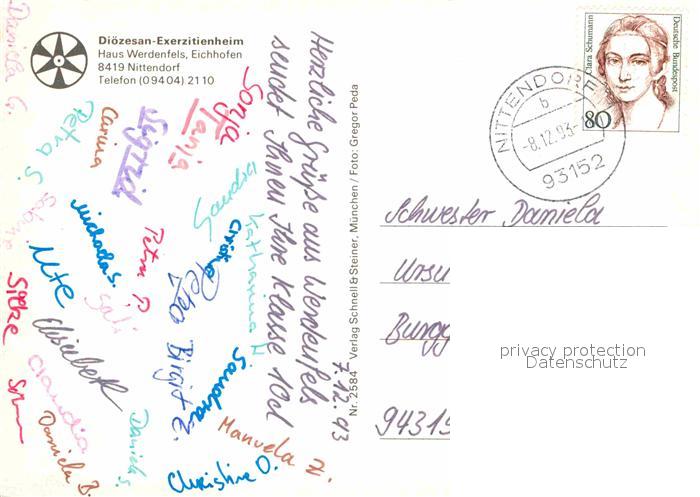 Diözesan-Exerzitienheim
Haus Werdenfels, Eichhofen
8419 Nittendorf
Telefon (09404) 2110
Herzliche Grüße aus Werdenfels
sendet Ihnen Ihre Klasse 10d
7.12.93
Daniela G.
Petra S.
Carina
Sigrid
Tanja
Sonja
Sandra
Katharina H.
Christina
Michaela S.
Petra P.
Petra
Ute
Gabi
Silke
Elisabeth
Birgit Z.
Sandra
Claudia
Daniela B.
Daniela S.
Manuela Z.
Christine O.
Nr. 2584 Verlag Schnell & Steiner, München / Foto: Gregor Peda
Clara Schumann
Deutsche Bundespost
80
NITTENDORF
b
-8.12.93-
93152
Schwester Daniela
Ursu
Burgg
9431
privacy protection
Datenschutz